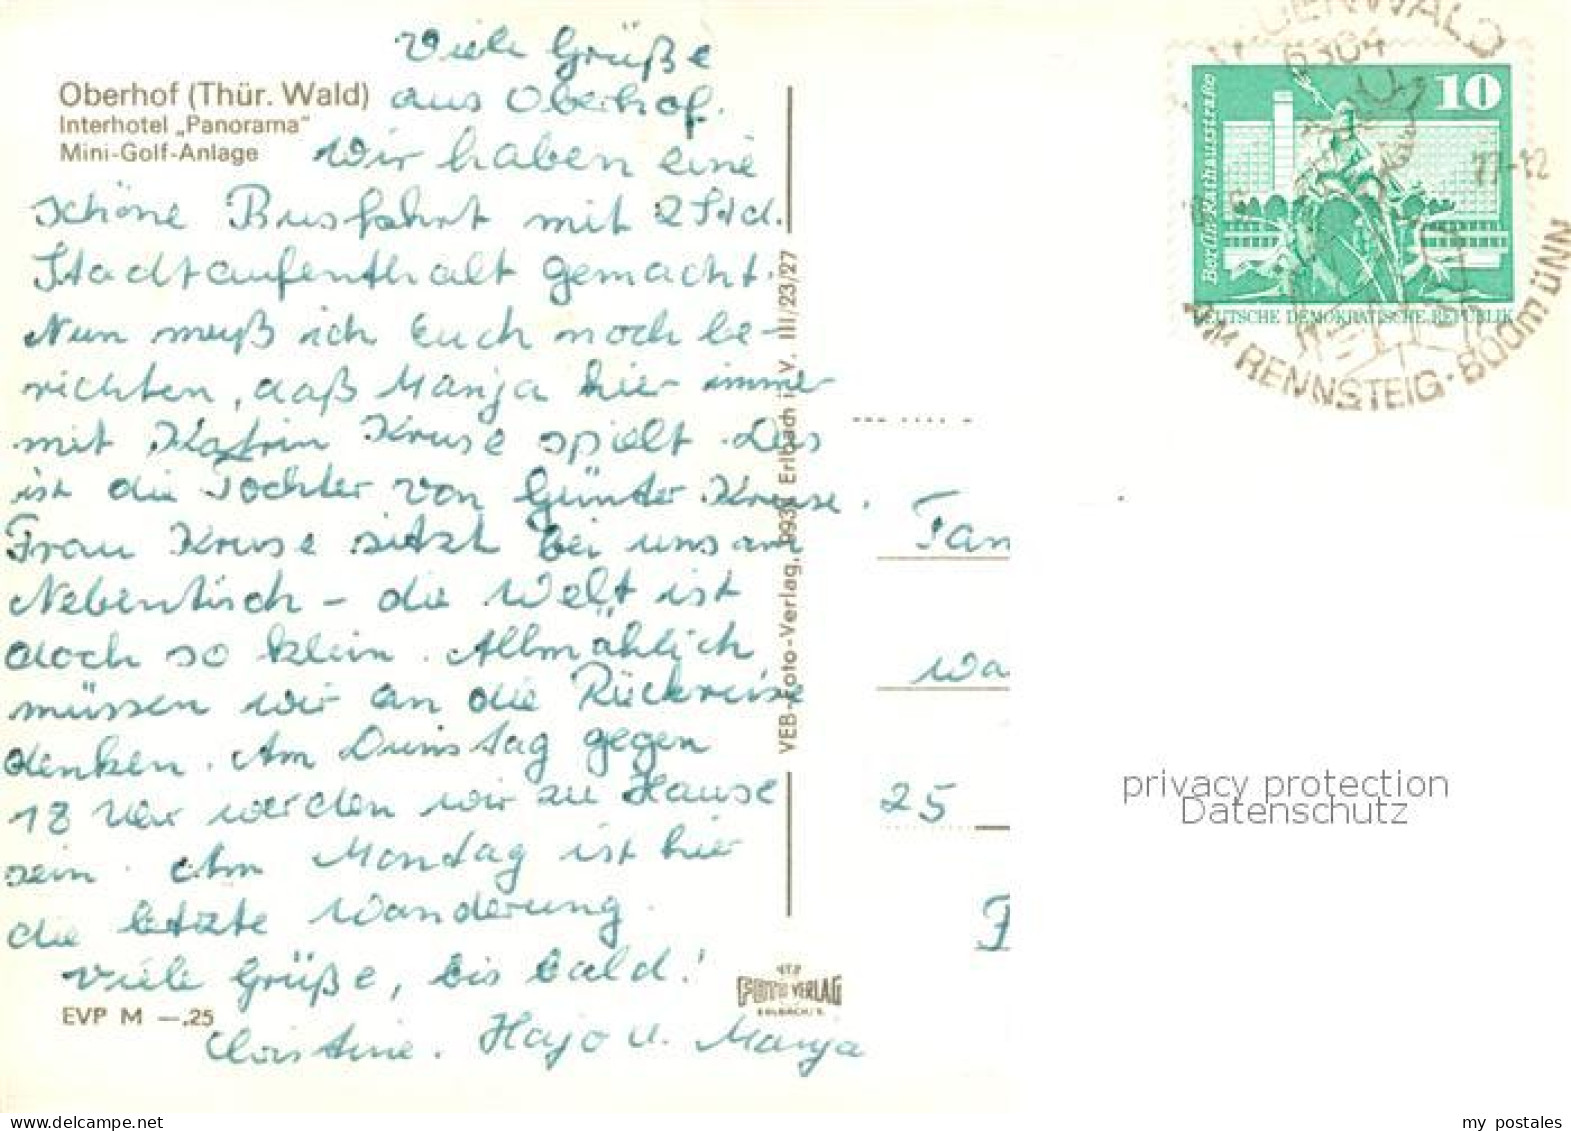 Viele Grüße
Oberhof (Thür. Wald)
aus Oberhof.
Interhotel „Panorama"
Mini-Golf-Anlage
Wir haben eine
schöne Busfahrt mit 2 Std.
Stadtaufenthalt gemacht.
Nun muß ich Euch noch be-
richten, daß Manja hier immer
mit Katrin Kruse spielt. Das
ist die Tochter von Günter Kruse.
Frau Kruse sitzt bei uns am
Nebentisch – die Welt ist
doch so klein. Allmählich
müssen wir an die Rückreise
denken. Am Dienstag gegen
18 Uhr werden wir zu Hause
sein. Am Montag ist hier
die letzte Wanderung.
Viele Grüße, bis bald!
EVP M –.25
Christine. Hajo u. Manja
VEB Foto-Verlag, Erlbach i. V. III/23/27
FOTO VERLAG
ERLBACH/V.
6304
10
Berlin, Rathausstraße
DEUTSCHE DEMOKRATISCHE REPUBLIK
AM RENNSTEIG · 800m üNN
Fam
Wa
25
privacy protection
Datenschutz
my postales
www.delcampe.net